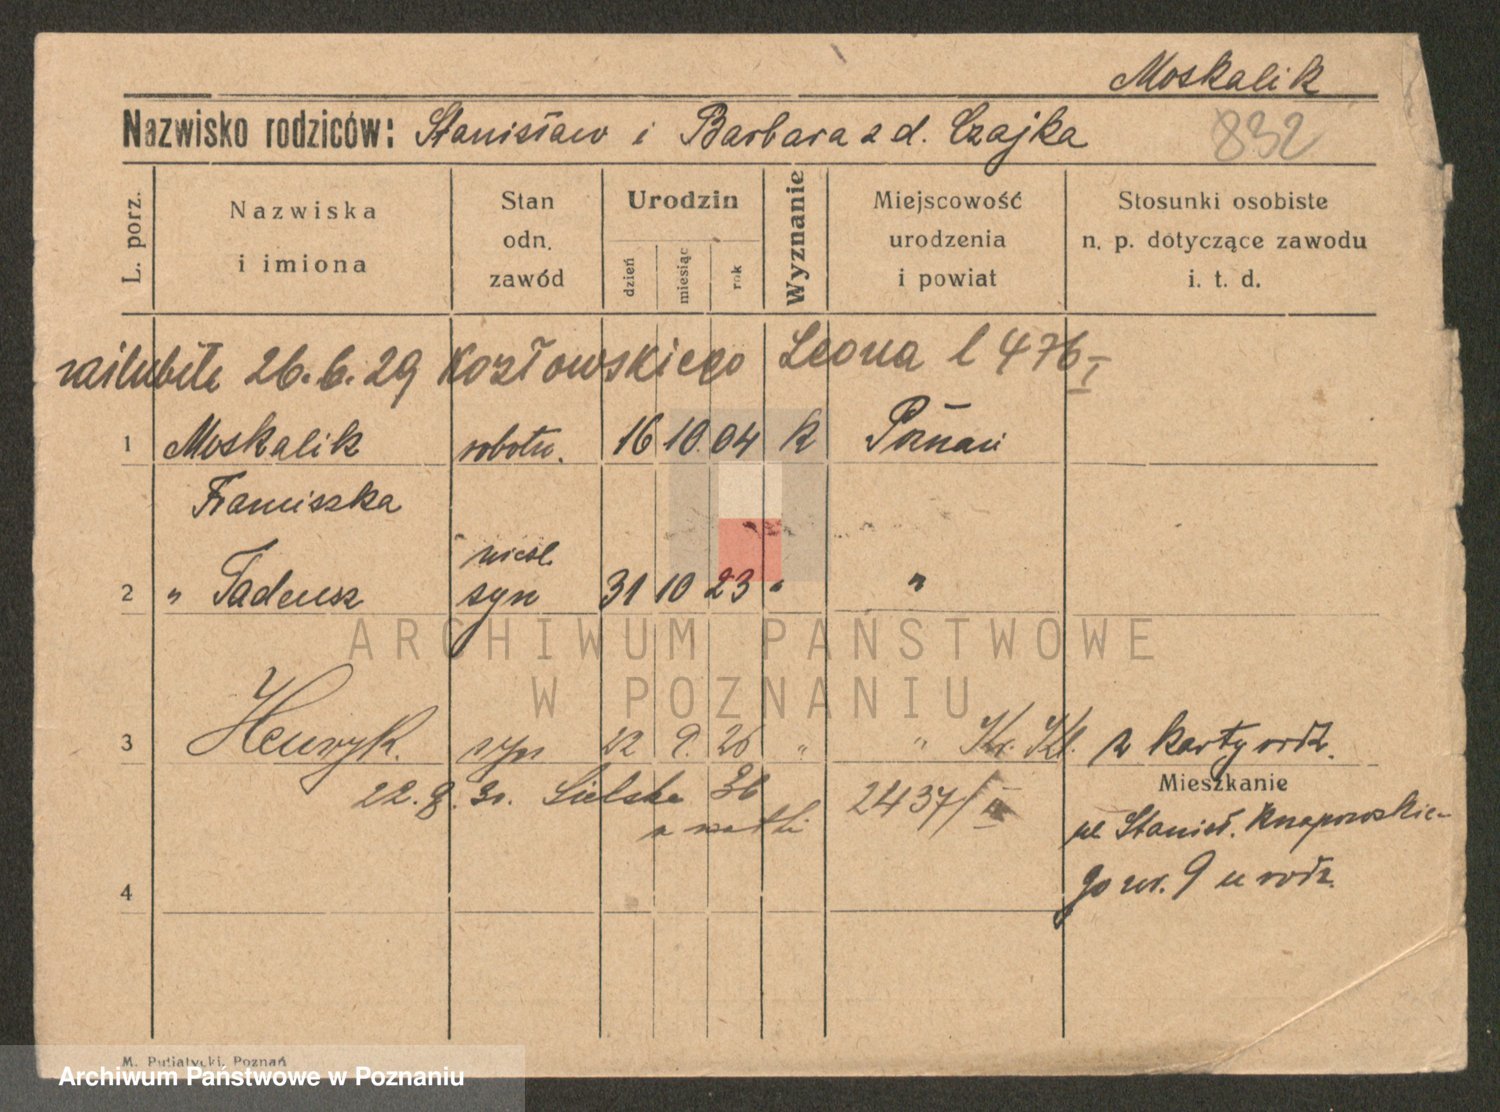 Moskalik
Nazwisko rodziców: Stanisław i Barbara z d. Czajka
832
L. porz.
Nazwiska
i imiona
Stan
odn.
zawód
Urodzin
dzień
miesiąc
rok
Wyznanie
Miejscowość
urodzenia
i powiat
Stosunki osobiste
n. p. dotyczące zawodu
i. t. d.
26.6.29 Kozłowskiego Leona l 476 I
1 Moskalik robotn. 16 10. 04 k Poznań
Franciszka
2 " Tadeusz nieśl. syn 31 10 23 " "
ARCHIWUM PAŃSTWOWE
W POZNANIU
3 Henryk. syn 22 9. 26 " " z karty rodz.
22. 8. 30. Sielska 36 2437/II
z matki
Mieszkanie
ul Stanisł. Knapowskie-
go nr. 9 u rodz.
4
M. Putiatycki, Poznań
Archiwum Państwowe w Poznaniu